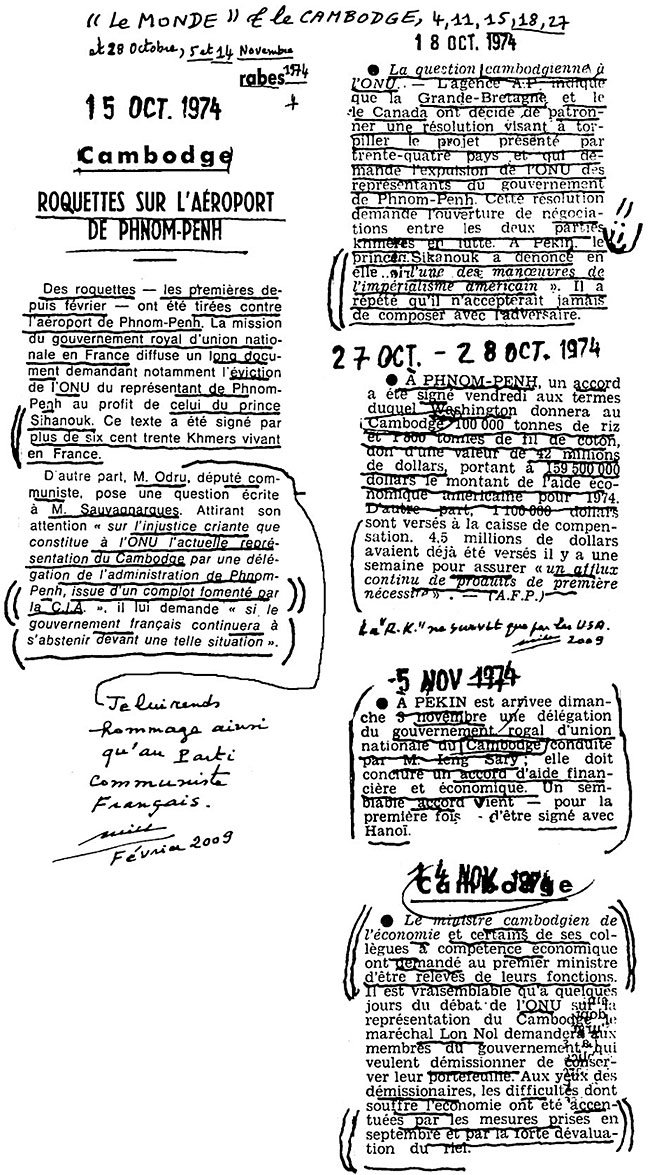 “ LE MONDE ” et le CAMBODGE, 4, 11, 15, 18, 27
et 28 Octobre, 5 et 14 Novembre
1974
rabes
15 OCT. 1974
Cambodge
ROQUETTES SUR L'AÉROPORT
DE PHNOM-PENH
Des roquettes — les premières de-
puis février — ont été tirées contre
l'aéroport de Phnom-Penh. La mission
du gouvernement royal d'union natio-
nale en France diffuse un long docu-
ment demandant notamment l'éviction
de l'ONU du représentant de Phnom-
Penh au profit de celui du prince
Sihanouk. Ce texte a été signé par
plus de six cent trente Khmers vivant
en France.
D'autre part, M. Odru, député com-
muniste, pose une question écrite
à M. Sauvagnargues. Attirant son
attention « sur l'injustice criante que
constitue à l'ONU l'actuelle repré-
sentation du Cambodge par une délé-
gation de l'administration de Phnom-
Penh, issue d'un complot fomenté par
la C.I.A. », il lui demande « si le
gouvernement français continuera à
s'abstenir devant une telle situation ».
Je lui rends
hommage ainsi
qu'au Parti
Communiste
Français.
Février 2009
18 OCT. 1974
● La question cambodgienne à
l'ONU. — L'agence A.P. indique
que la Grande-Bretagne et le
le Canada ont décidé de patron-
ner une résolution visant à tor-
piller le projet présenté par
trente-quatre pays et qui de-
mande l'expulsion de l'ONU des
représentants du gouvernement
de Phnom-Penh. Cette résolution
demande l'ouverture de négocia-
tions entre les deux parties
khmères en lutte. A Pékin, le
prince Sikanouk a dénoncé en
elle « l'une des manœuvres de
l'impérialisme américain ». Il a
répété qu'il n'accepterait jamais
de composer avec l'adversaire.
27 OCT. - 28 OCT. 1974
● À PHNOM-PENH, un accord
a été signé vendredi aux termes
duquel Washington donnera au
Cambodge 100 000 tonnes de riz
et 1 800 tonnes de fil de coton,
don d'une valeur de 42 millions
de dollars, portant à 159 500 000
dollars le montant de l'aide éco-
nomique américaine pour 1974.
D'autre part, 1 100 000 dollars
sont versés à la caisse de compen-
sation. 4,5 millions de dollars
avaient déjà été versés il y a une
semaine pour assurer « un afflux
continu de produits de première
nécessité » . — (A.F.P.)
La “R.K.” ne survit que par les USA.
2009
-5 NOV 1974
● À PÉKIN est arrivée diman-
che 3 novembre une délégation
du gouvernement rogal d'union
nationale du Cambodge conduite
par M. Ieng Sary ; elle doit
conclure un accord d'aide finan-
cière et économique. Un sem-
blable accord vient — pour la
première fois - d'être signé avec
Hanoï.
14 NOV. 1974
Cambodge
● Le ministre cambodgien de
l'économie et certains de ses col-
lègues à compétence économique
ont demandé au premier ministre
d'être relevés de leurs fonctions.
Il est vraisemblable qu'à quelques
jours du débat de l'ONU sur la
représentation du Cambodge le
maréchal Lon Nol demandera aux
membres du gouvernement qui
veulent démissionner de conser-
ver leur portefeuille. Aux yeux des
démissionaires, les difficultés dont
souffre l'économie ont été accen-
tuées par les mesures prises en
septembre et par la forte dévalua-
tion du riel.